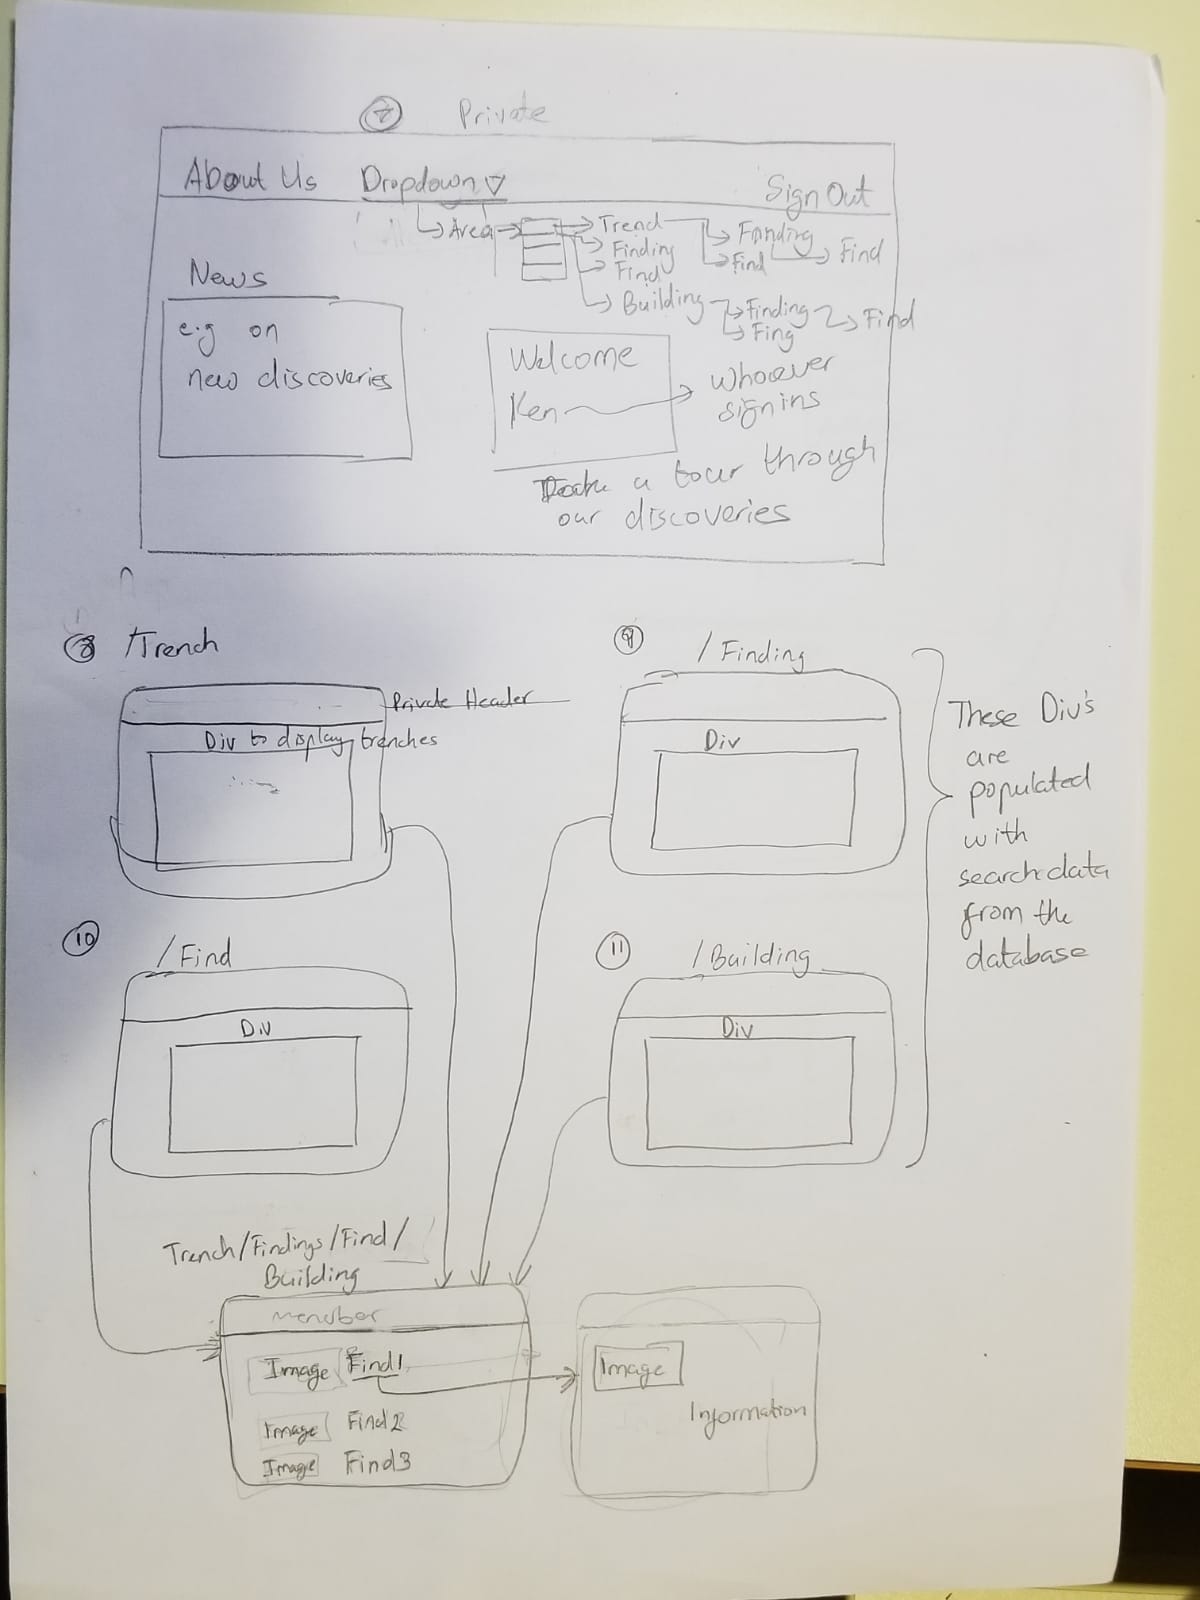 7 Private
About Us Dropdown Sign Out
Area Trend Fanding Find
Finding Find
Find
Building Finding Find
Fing
News
e.g on
new discoveries
Welcome
Ken
Whoever
signins
a tour through
our discoveries
8 /Trench
Private Header
Div to display trenches
9 /Finding
Div
These Div's
are
populated
with
search data
from the
database
10 /Find
Div
11 /Building
Div
Trench/Findings/Find/
Building
menubar
Image Find1
Image Find2
Image Find3
Image
Information